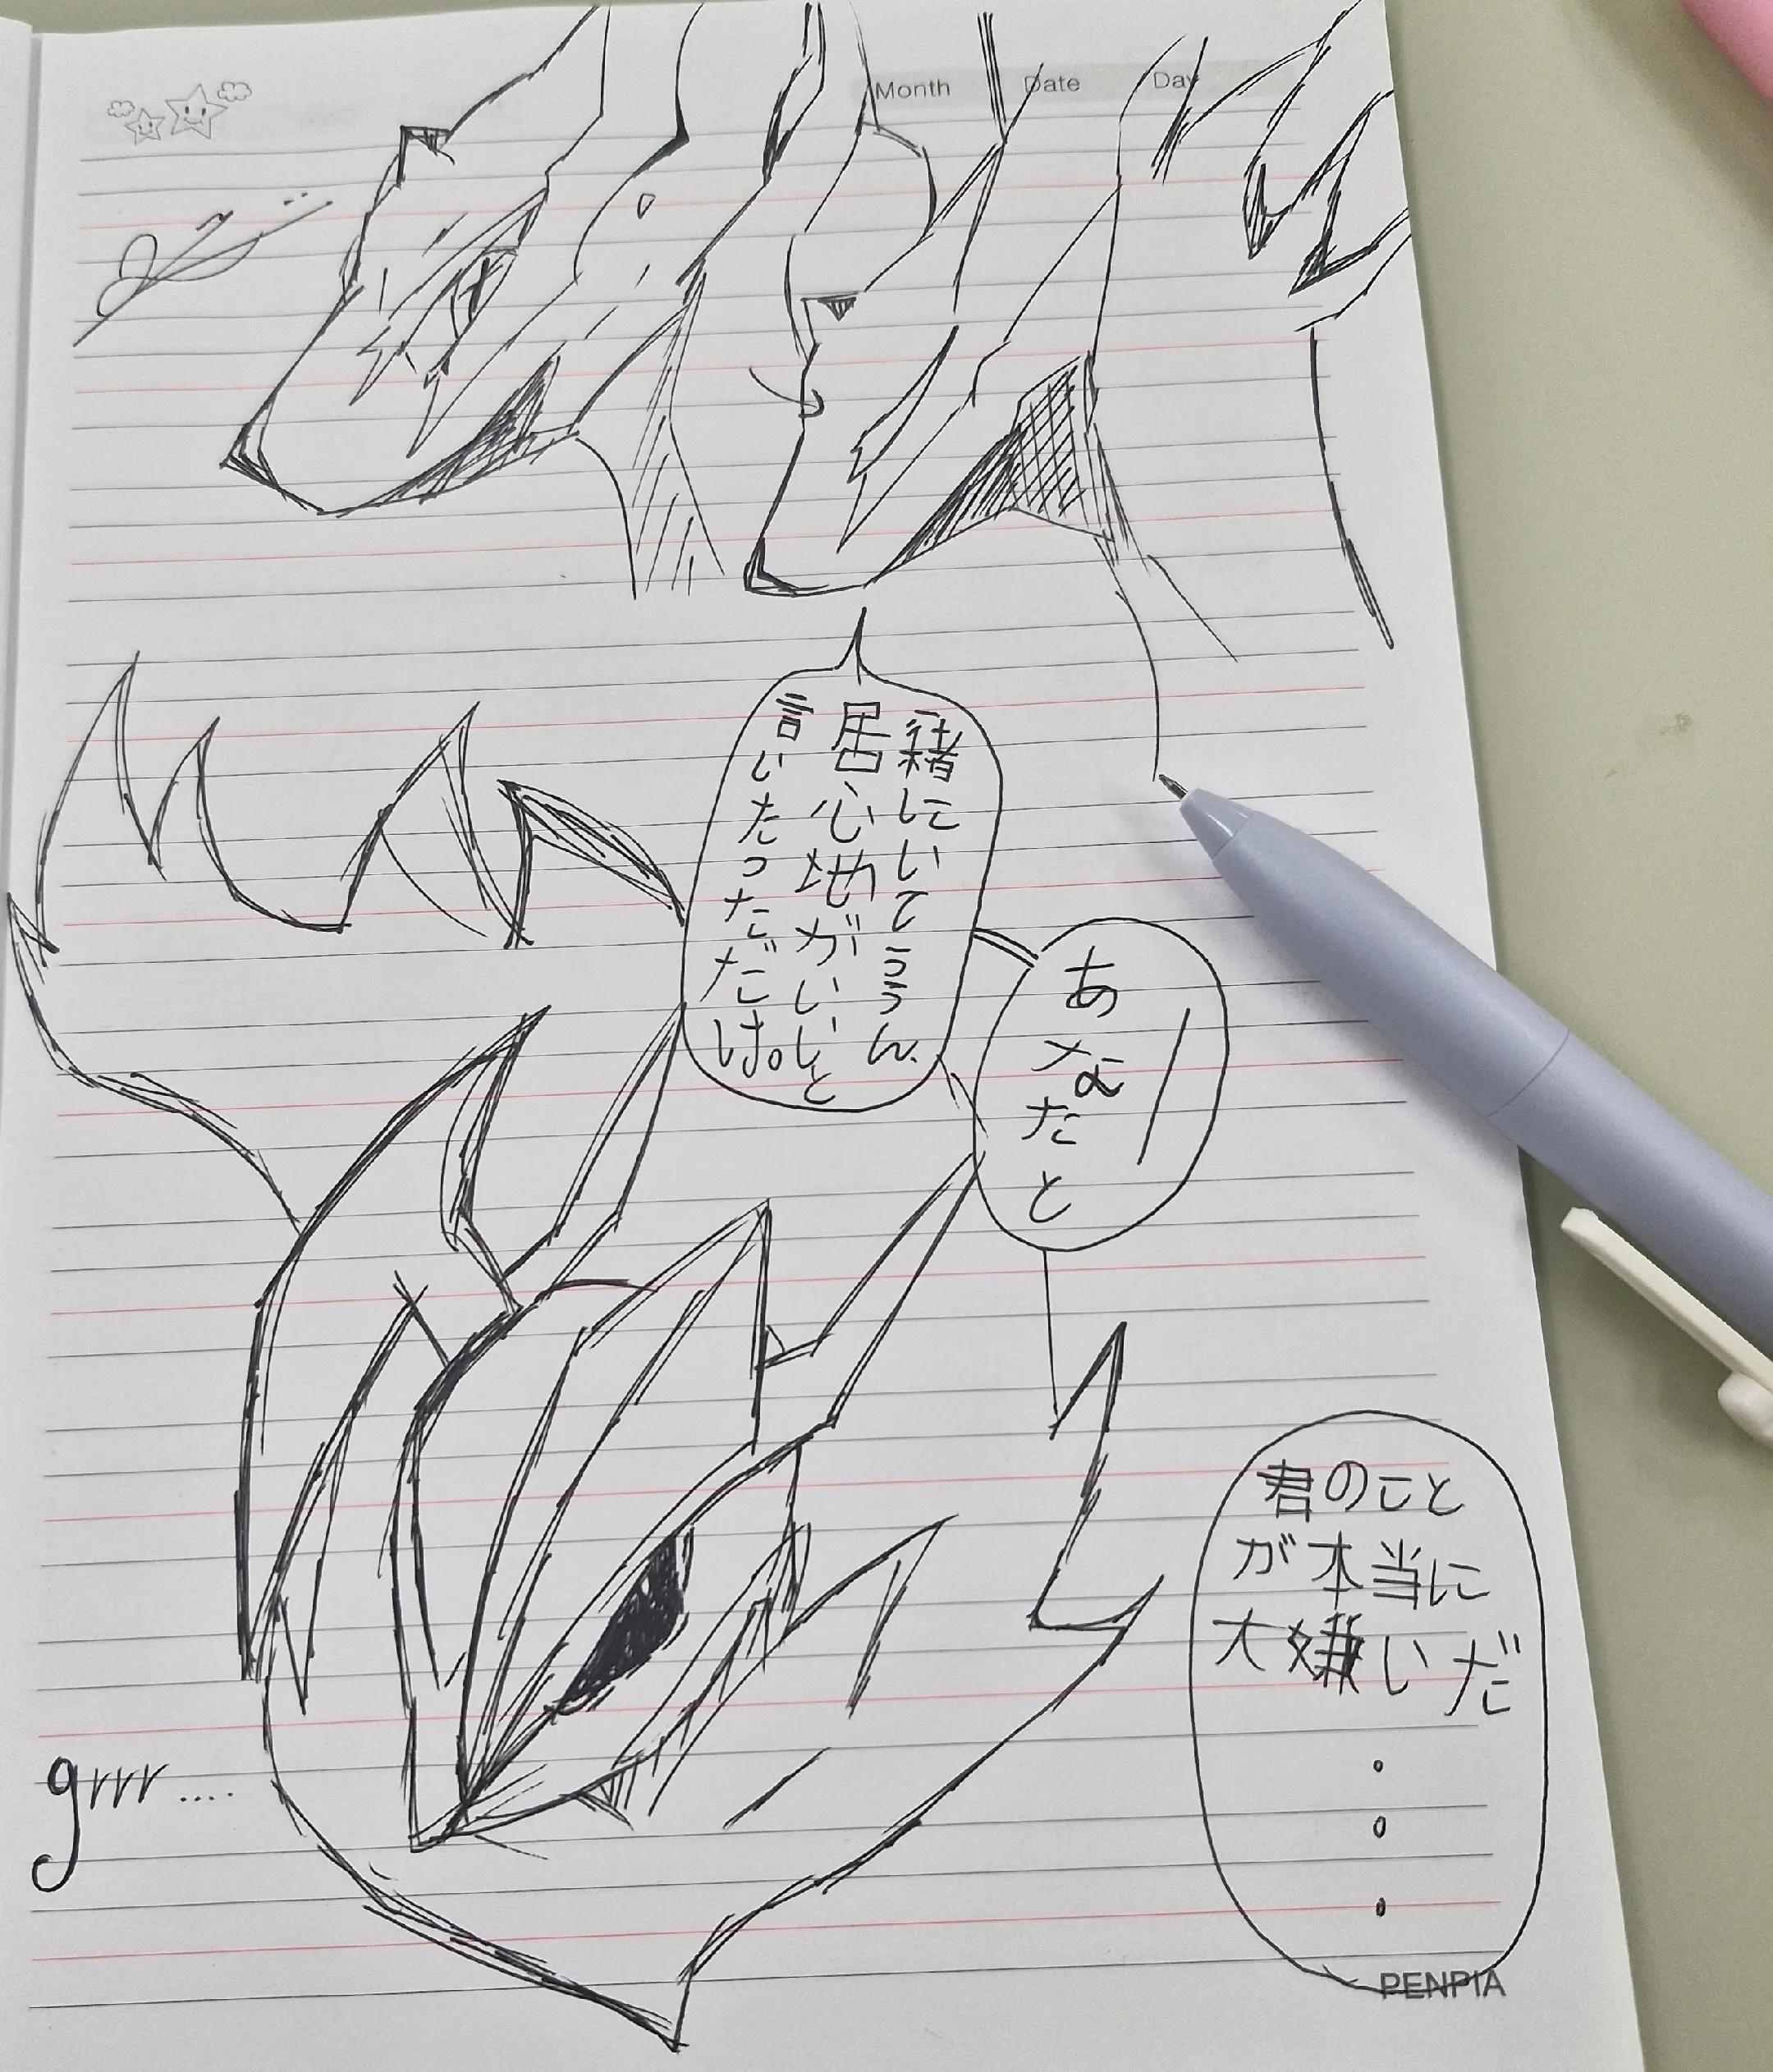 Month Date Day
ー
あなたと
緒にいてううん、
居心地がいいと
言いたっただけ。
君のこと
が本当に
大嫌いだ
・
・
・
grrr....
PENPIA